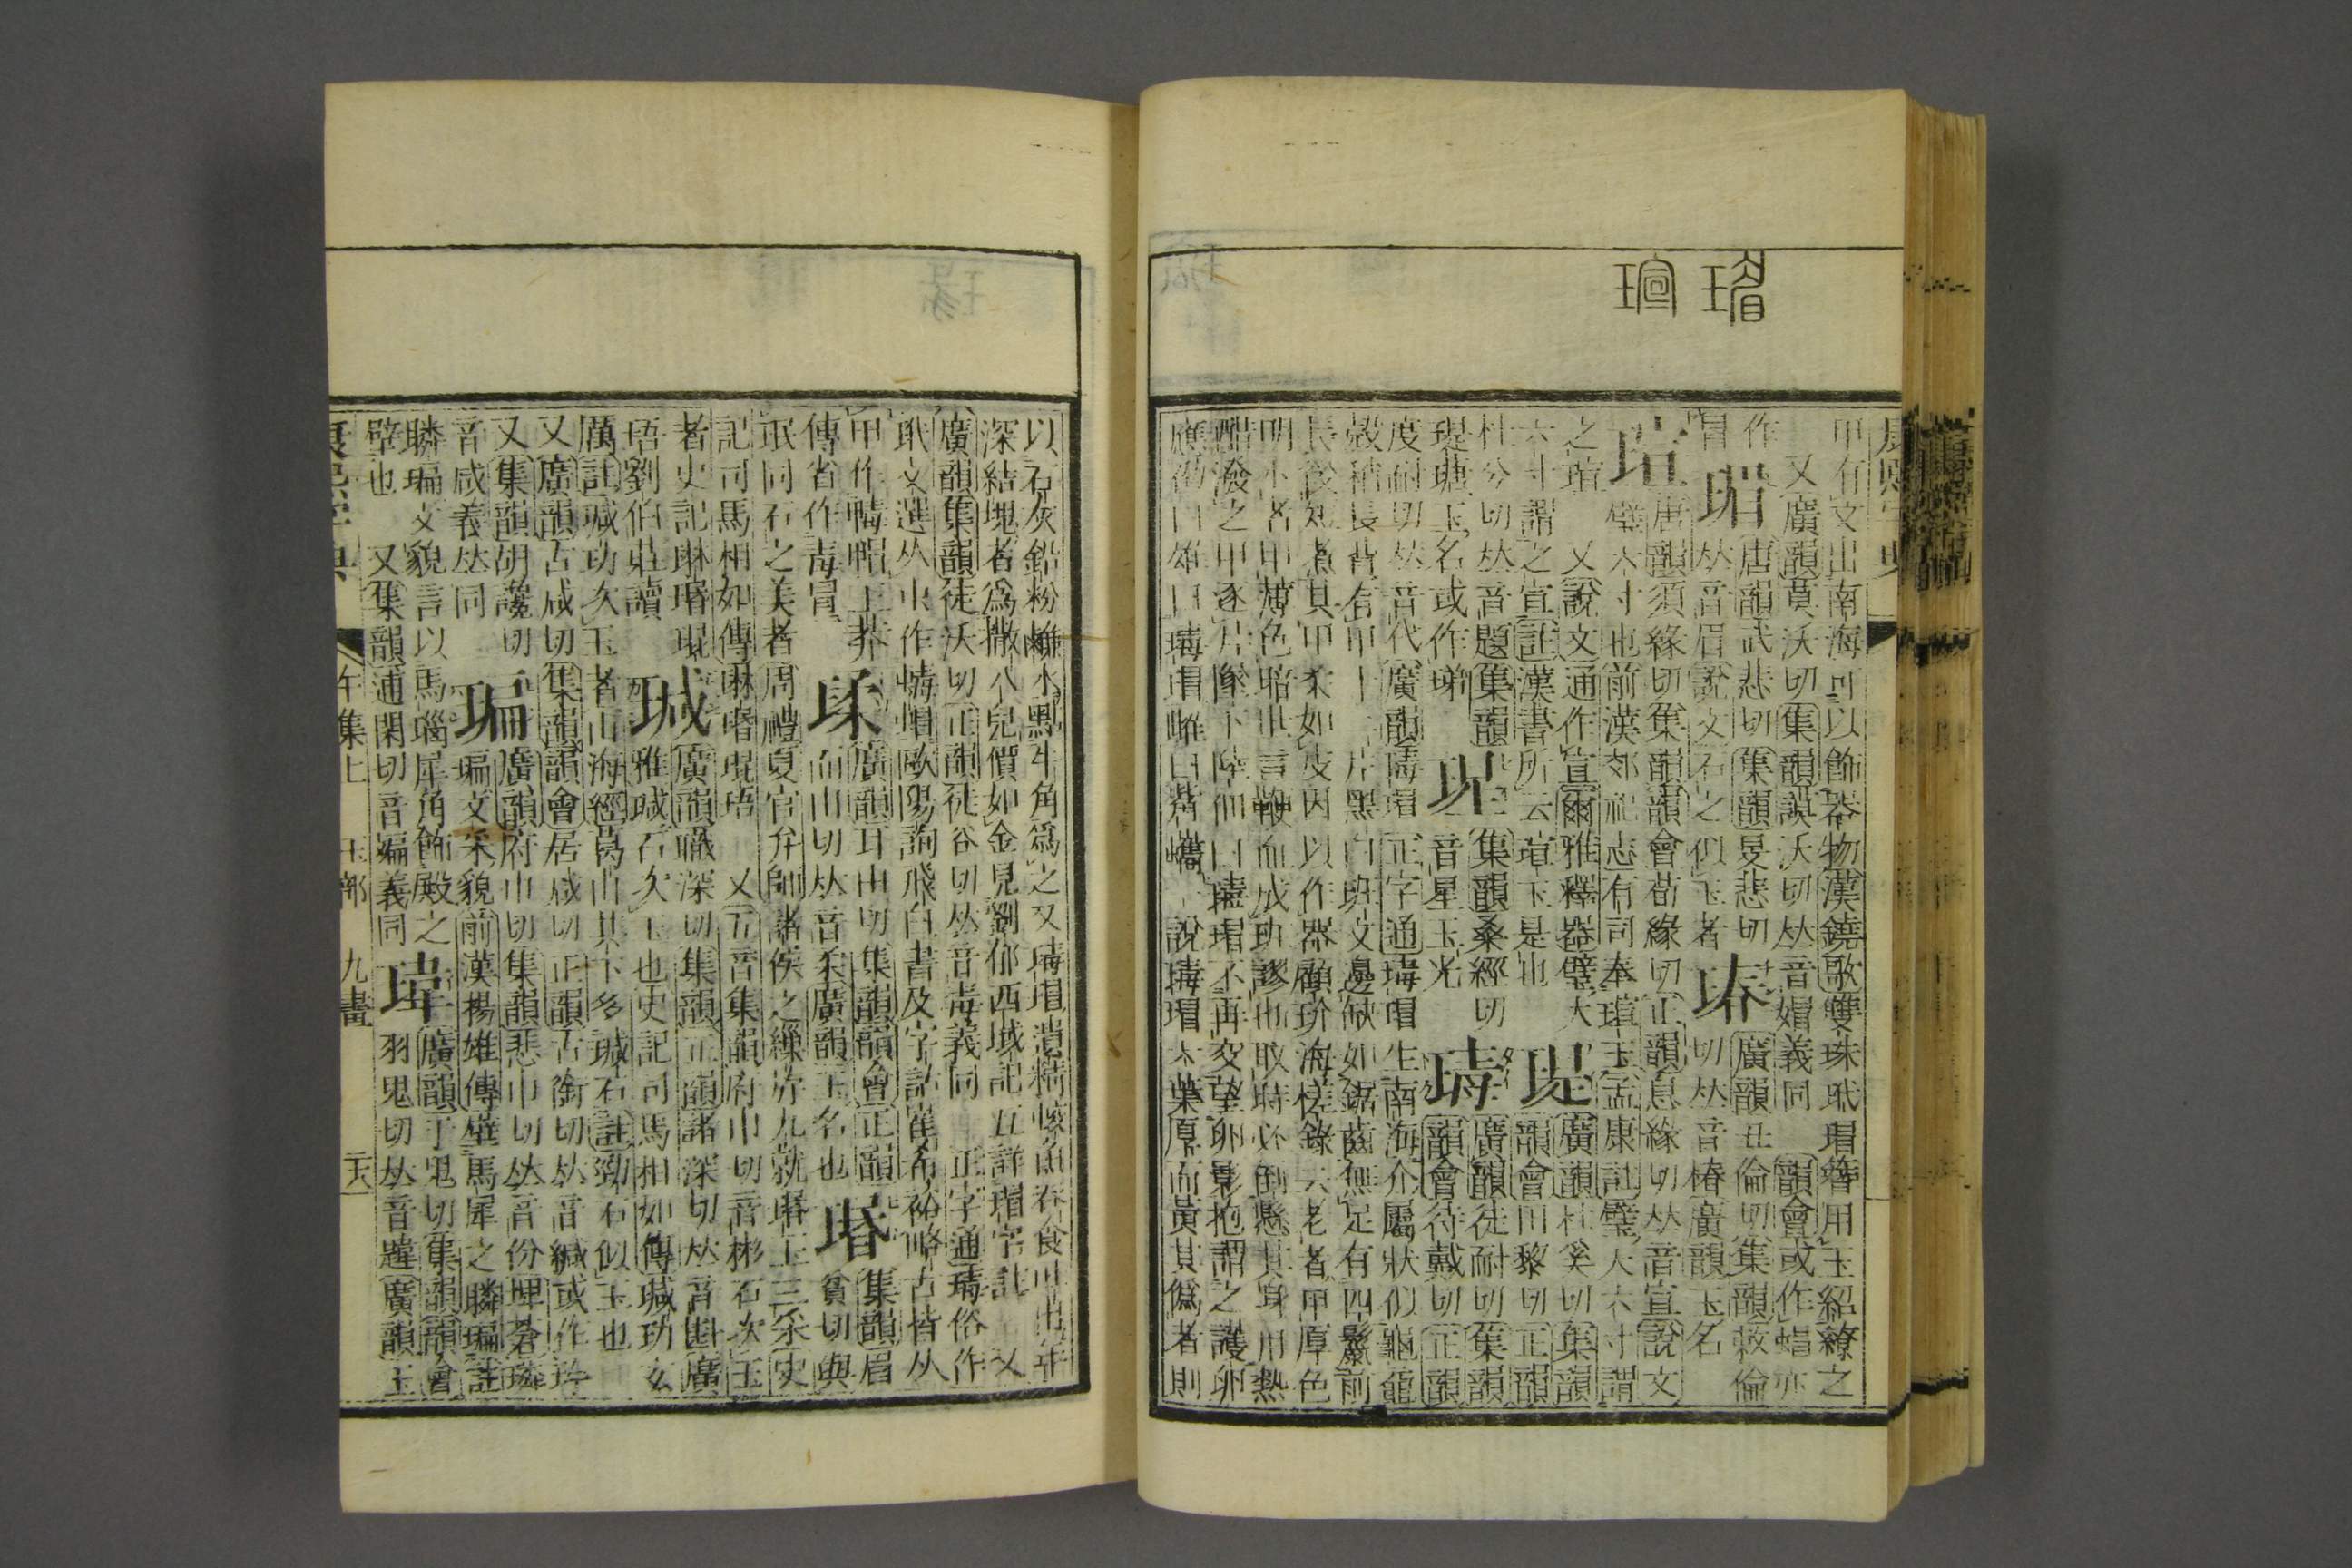 瑂
瑄
康熙字典
甲有文出南海可以飾器物漢鐃歌雙珠玳瑁簪用玉紹繚之
又廣韻莫沃切集韻謨沃切𠀤音媢義同 韻會或作蝐亦
作冒
瑂 唐韻武悲切集韻旻悲切
𠀤音眉說文石之似玉者
瑃 廣韻丑倫切集韻敕倫
切𠀤音椿廣韻玉名
瑄 唐韻須緣切集韻韻會荀緣切正韻息緣切𠀤音宣說文
璧六寸也前漢郊祀志有司奉瑄玉孟康註璧大六寸謂
之瑄 又說文通作宣爾雅釋器璧大
六寸謂之宣註漢書所云瑄玉是也
瑅 廣韻杜奚切集韻
韻會田黎切正韻
杜兮切𠀤音題集韻
瑅瑭玉名或作珶
瑆 集韻桑經切
音星玉光
瑇 廣韻徒耐切集韻
韻會待戴切正韻
度耐切𠀤音代廣韻瑇瑁 正字通瑇瑁生南海介屬狀似龜黿
殼稍長背有甲十二片黑白班文邊缺如鋸齒無足有四鬣前
長後短煮其甲柔如皮因以作器顧玠海槎錄云老者甲厚色
明小者甲薄色暗世言鞭而成斑謬也取時必倒懸其身用熱
醋潑之甲逐片隨下陸佃曰瑇瑁不再交望卵影抱謂之護卵
應劭曰雄曰瑇瑁雌曰觜蠵一說瑇瑁木葉厚而黃其僞者則
以石灰鉛粉水黑牛角爲之又瑇瑁遺精魚吞食吐出年
深結塊者爲撒八兒價如金見劉郁西域記互詳瑁字註 又
廣韻集韻徒沃切正韻徒谷切𠀤音毒義同 正字通瑇俗作
玳文選从巾作帽歐陽詢飛白書及字詁崔希裕略古皆从
甲作帽王莽
傳省作毒冒
瑈 廣韻耳由切集韻韻會正韻
而由切𠀤音柔廣韻玉名也
瑉 集韻眉
貧切與
珉同石之美者周禮夏官弁師諸侯之繅斿九就瑉玉三采史
記司馬相如傳琳瑉琨珸 又五音集韻府巾切音彬石次玉
者史記琳瑉琨
珸劉伯莊讀
瑊 廣韻職深切集韻正韻諸深切𠀤音斟廣
雅瑊石次玉也史記司馬相如傳瑊玏玄
厲註瑊玏次玉者山海經葛山其下多瑊石註勁石似玉也
又廣韻古咸切集韻韻會居咸切正韻古銜切𠀤音緘或作玪
又集韻胡讒切
音咸義𠀤同
㻞 廣韻府巾切集韻悲巾切𠀤音份埤蒼璘
㻞文采貌前漢揚雄傳壁馬犀之瞵㻞註
瞵㻞文貌言以馬瑙犀角飾殿之
壁也 又集韻逋閑切音斒義同
瑋 廣韻于鬼切集韻韻會
羽鬼切𠀤音韙廣韻玉
康熙字典 午集上 玉部 九畫